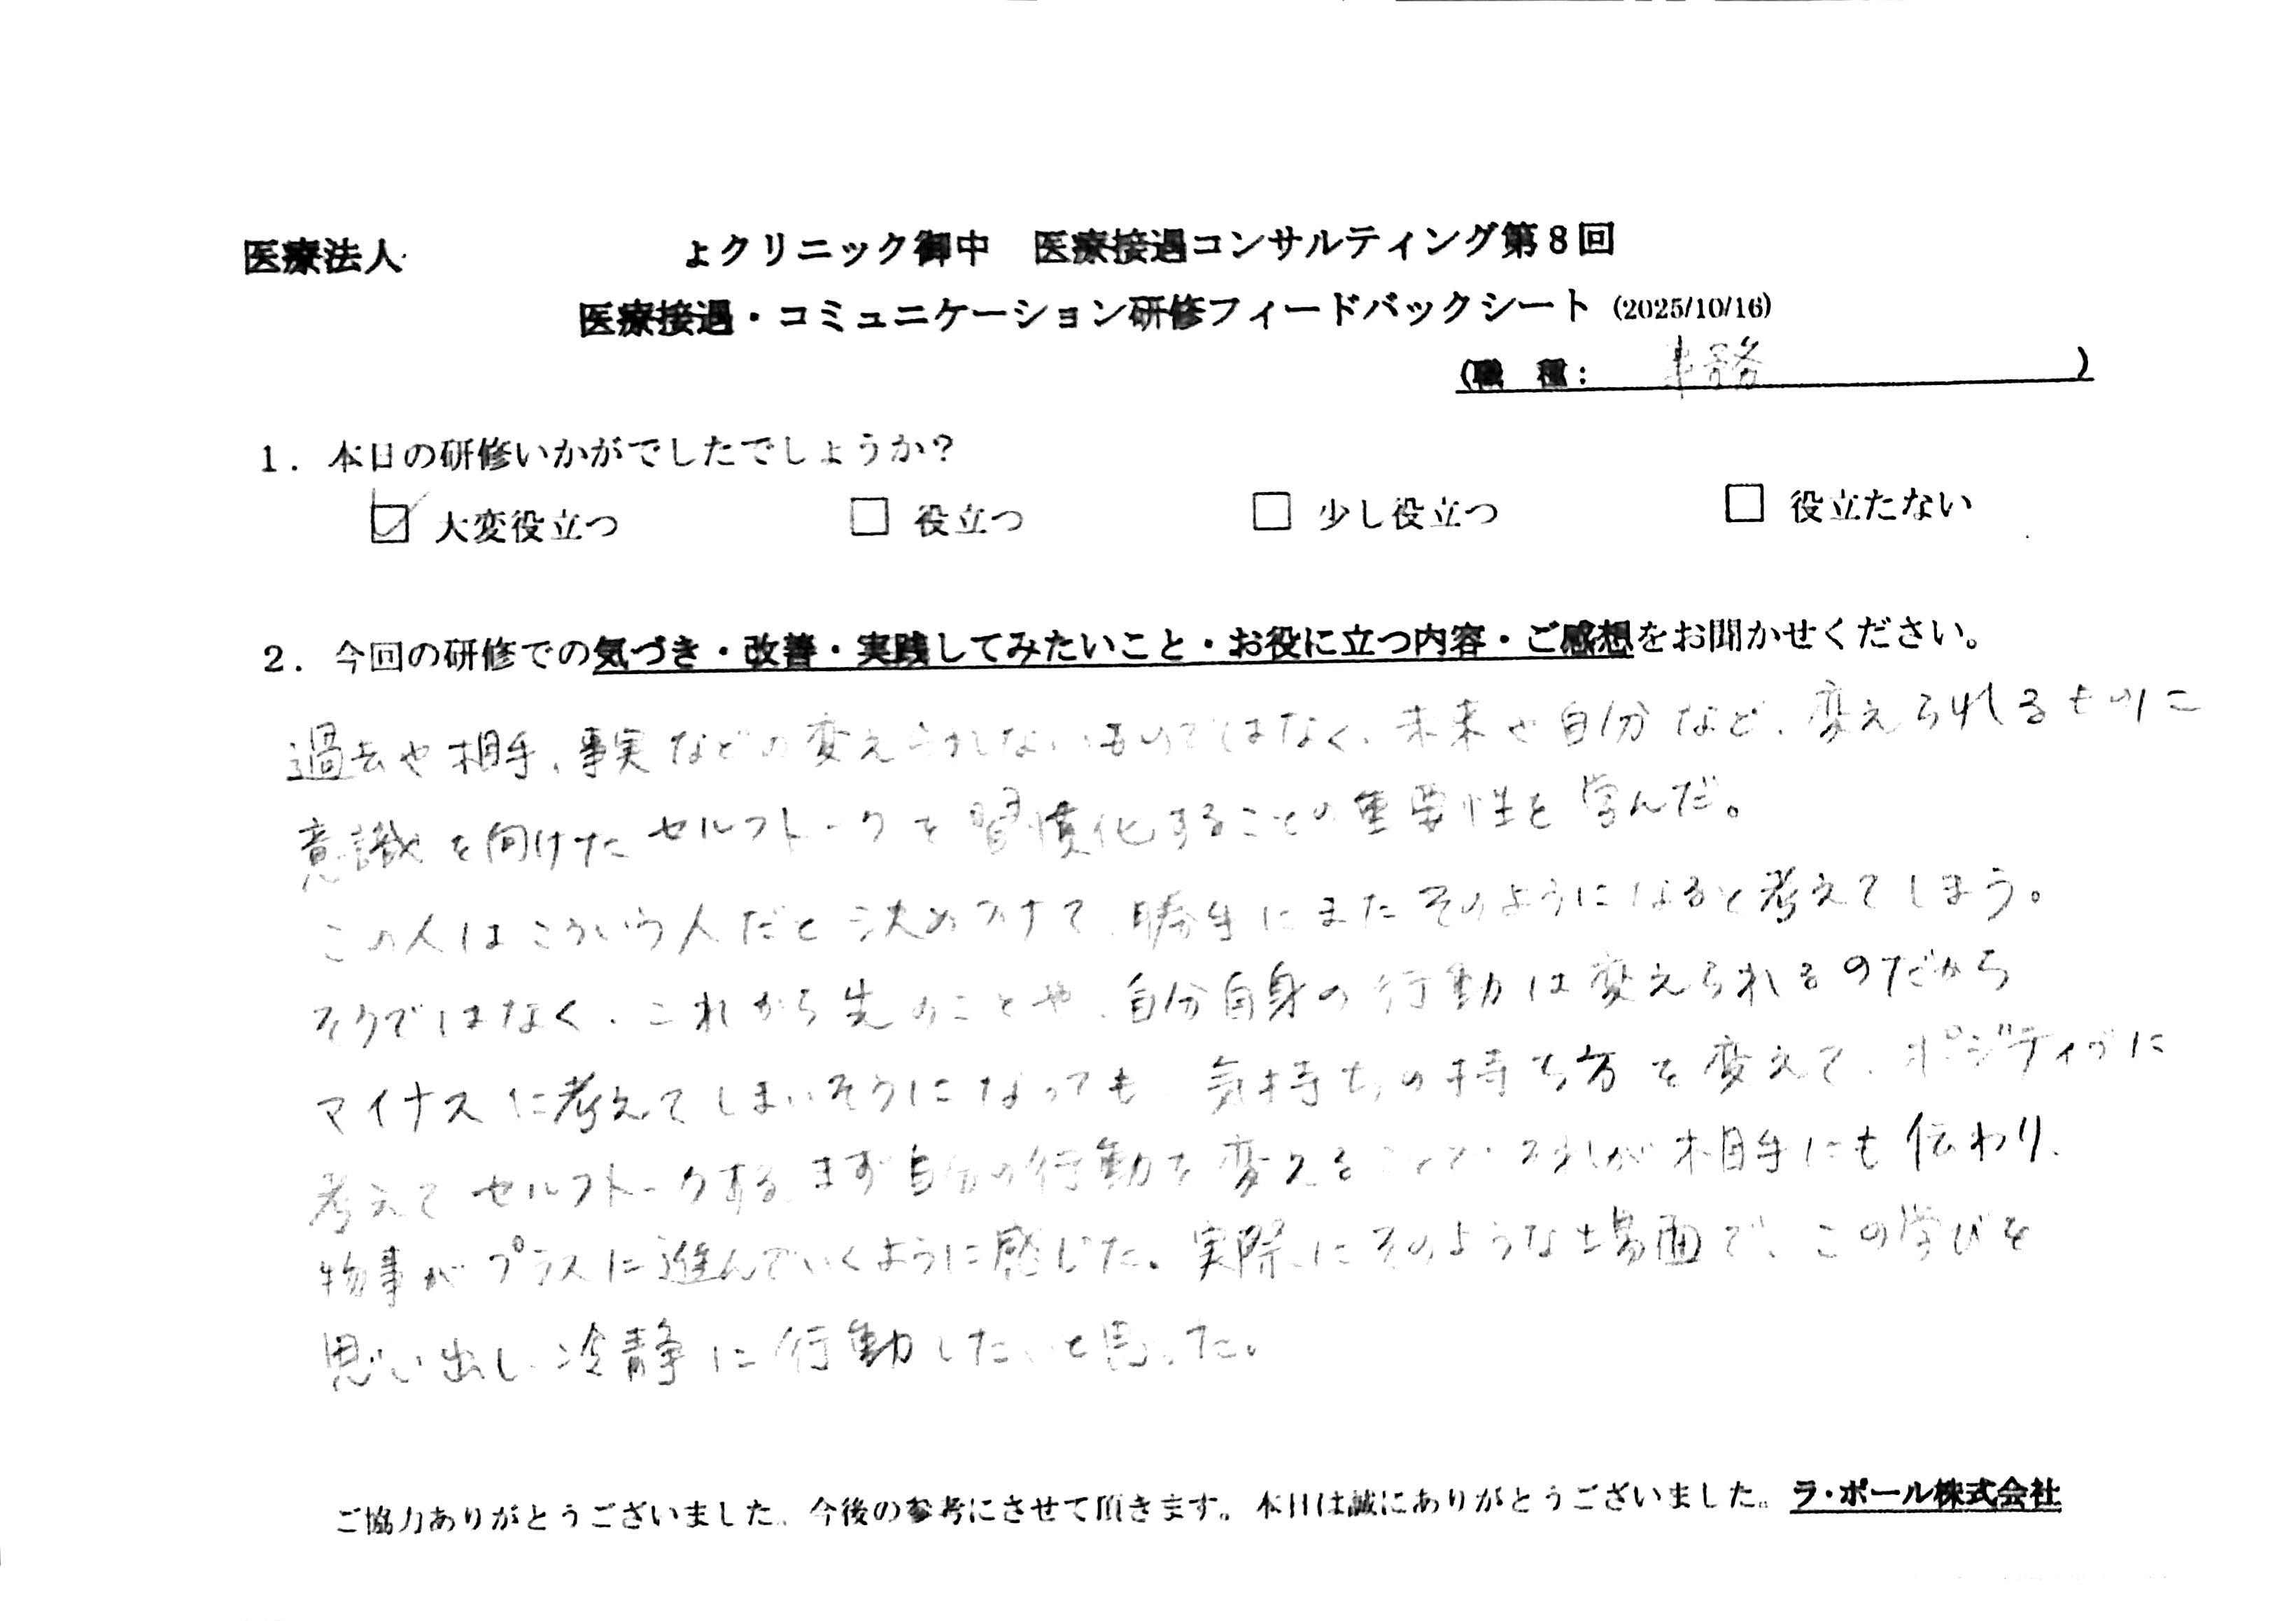 医療法人 ょクリニック御中 医療接遇コンサルティング第8回
医療接遇・コミュニケーション研修フィードバックシート (2025/10/16)
(職 種: 事務 )
1. 本日の研修いかがでしたでしょうか?
☑ 大変役立つ □ 役立つ □ 少し役立つ □ 役立たない
2. 今回の研修での気づき・改善・実践してみたいこと・お役に立つ内容・ご感想をお聞かせください。
過去や相手、事実などの変えられないものではなく、未来や自分など、変えられるものに
意識を向けたセルフトークを習慣化することの重要性を学んだ。
この人はこういう人だと決めつけて、勝手にまたそのようになると考えてしまう。
そうではなく、これから先のことや、自分自身の行動は変えられるのだから
マイナスに考えてしまいそうになっても、気持ちの持ち方を変えて、ポジティブに
考えてセルフトークする。まず自分の行動を変えることで、それが相手にも伝わり、
物事がプラスに進んでいくように感じた。実際にそのような場面で、この学びを
思い出し、冷静に行動したいと思った。
ご協力ありがとうございました。今後の参考にさせて頂きます。本日は誠にありがとうございました。 ラ・ポール株式会社